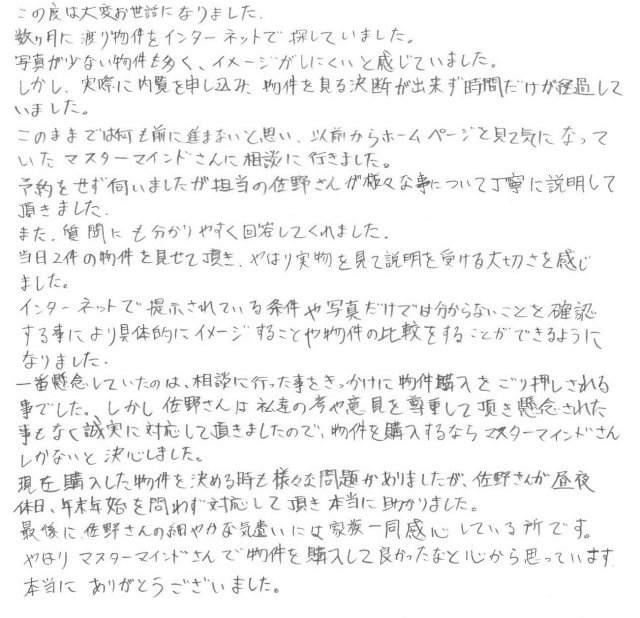 この度は大変お世話になりました.
数ヶ月に渡り物件をインターネットで探していました。
写真が少ない物件も多く、イメージがしにくいと感じていました。
しかし、実際に内覧を申し込み、物件を見る決断が出来ず時間だけが経過して
いました。
このままでは何も前に進まないと思い、以前からホームページを見て気になって
いたマスターマインドさんに相談に行きました。
予約をせず伺いましたが担当の佐野さんが様々な事について丁寧に説明して
頂きました.
また、質問にも分かりやすく回答してくれました.
当日2件の物件を見せて頂き、やはり実物を見て説明を受ける大切さを感じ
ました。
インターネットで提示されている条件や写真だけでは分からないことを確認
する事により具体的にイメージすることや物件の比較をすることができるように
なりました.
一番懸念していたのは、相談に行った事をきっかけに物件購入をごり押しされる
事でした。しかし佐野さんは私達の考や意見を尊重して頂き懸念された
事もなく誠実に対応して頂きましたので、物件を購入するならマスターマインドさん
しかないと決心しました。
現在購入した物件を決める時も様々な問題がありましたが、佐野さんが昼夜
休日、年末年始を問わず対応して頂き本当に助かりました。
最後に、佐野さんの細やかな気遣いには家族一同感心している所です。
やはりマスターマインドさんで物件を購入して良かったなと心から思っています
本当にありがとうございました。